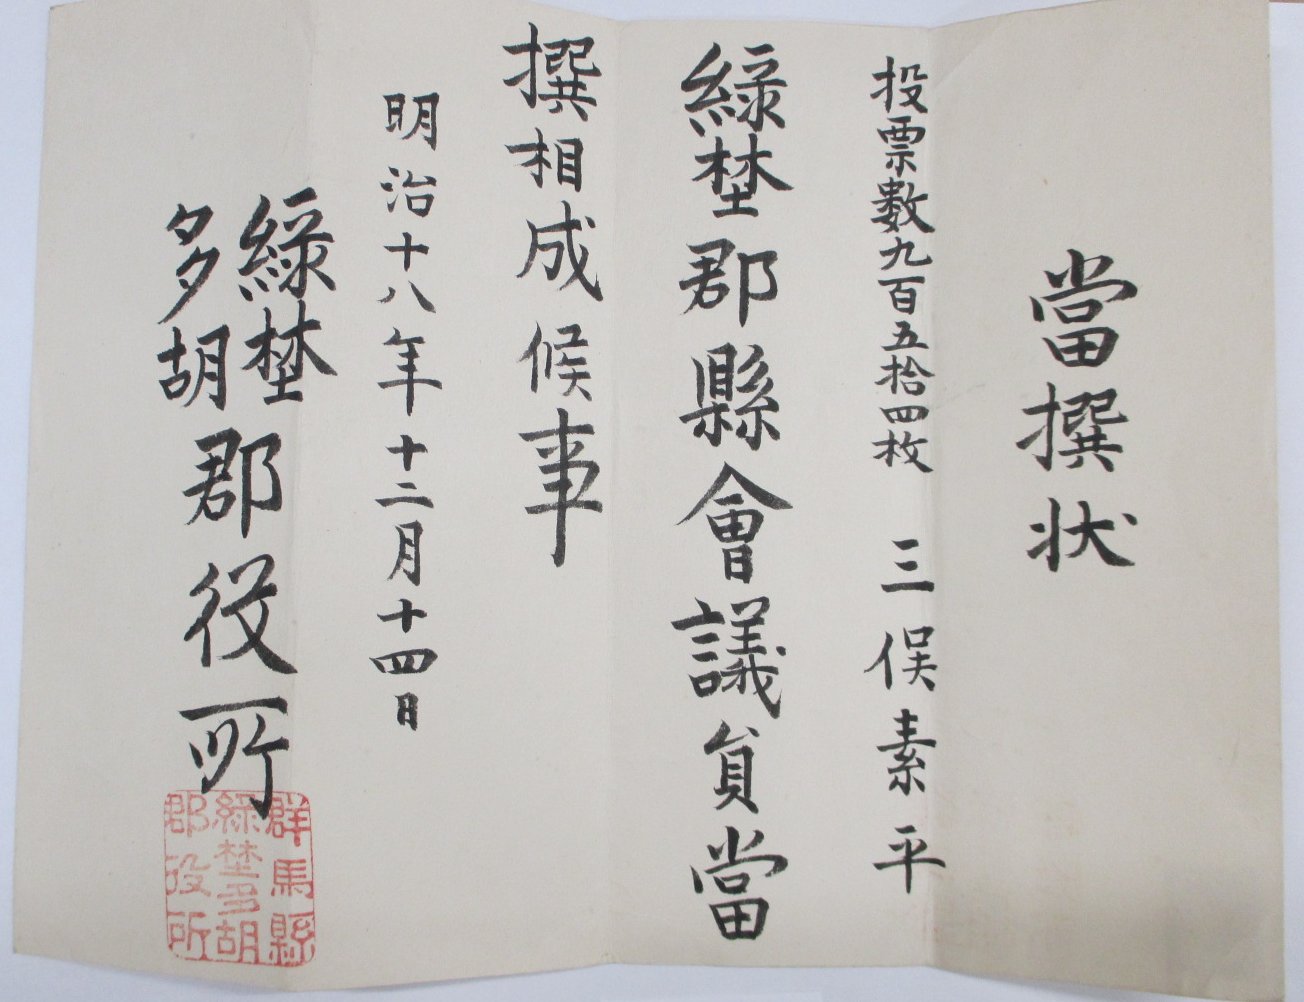 當撰状
投票數九百五拾四枚　三俣素平
綠埜郡縣會議員當
撰相成候事
明治十八年十二月十四日
綠埜
多胡
郡役所
群馬縣
綠埜多胡
郡役所